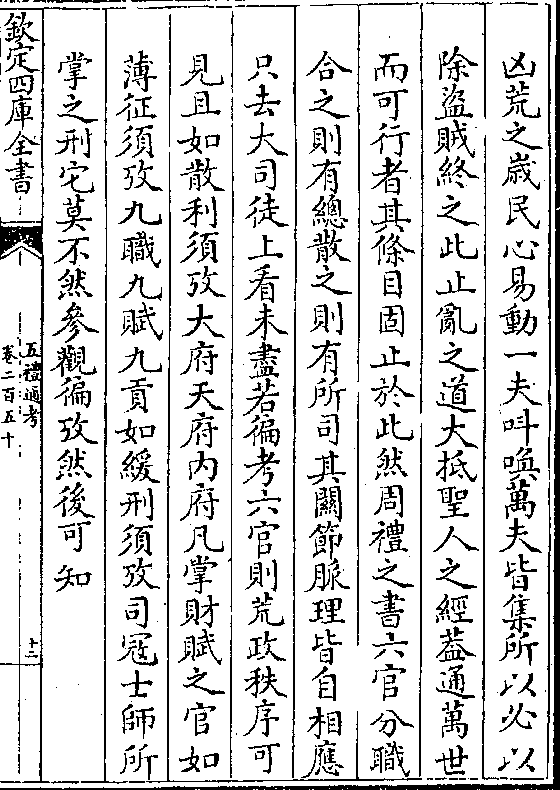 凶荒之歳民心易動一夫呌喚萬夫皆集所以必以
除盜賊終之此止亂之道大抵聖人之經葢通萬世
而可行者其條目固止於此然周禮之書六官分職
合之則有總散之則有所司其闗節脈理皆自相應
只去大司徒上看未盡若徧考六官則荒政秩序可
見且如散利須攷大府天府内府凡掌財賦之官如
薄征須攷九職九賦九貢如緩刑須攷司冦士師所
掌之刑它莫不然參觀徧攷然後可知
欽定四庫全書
五禮通考
卷二百五十
十二